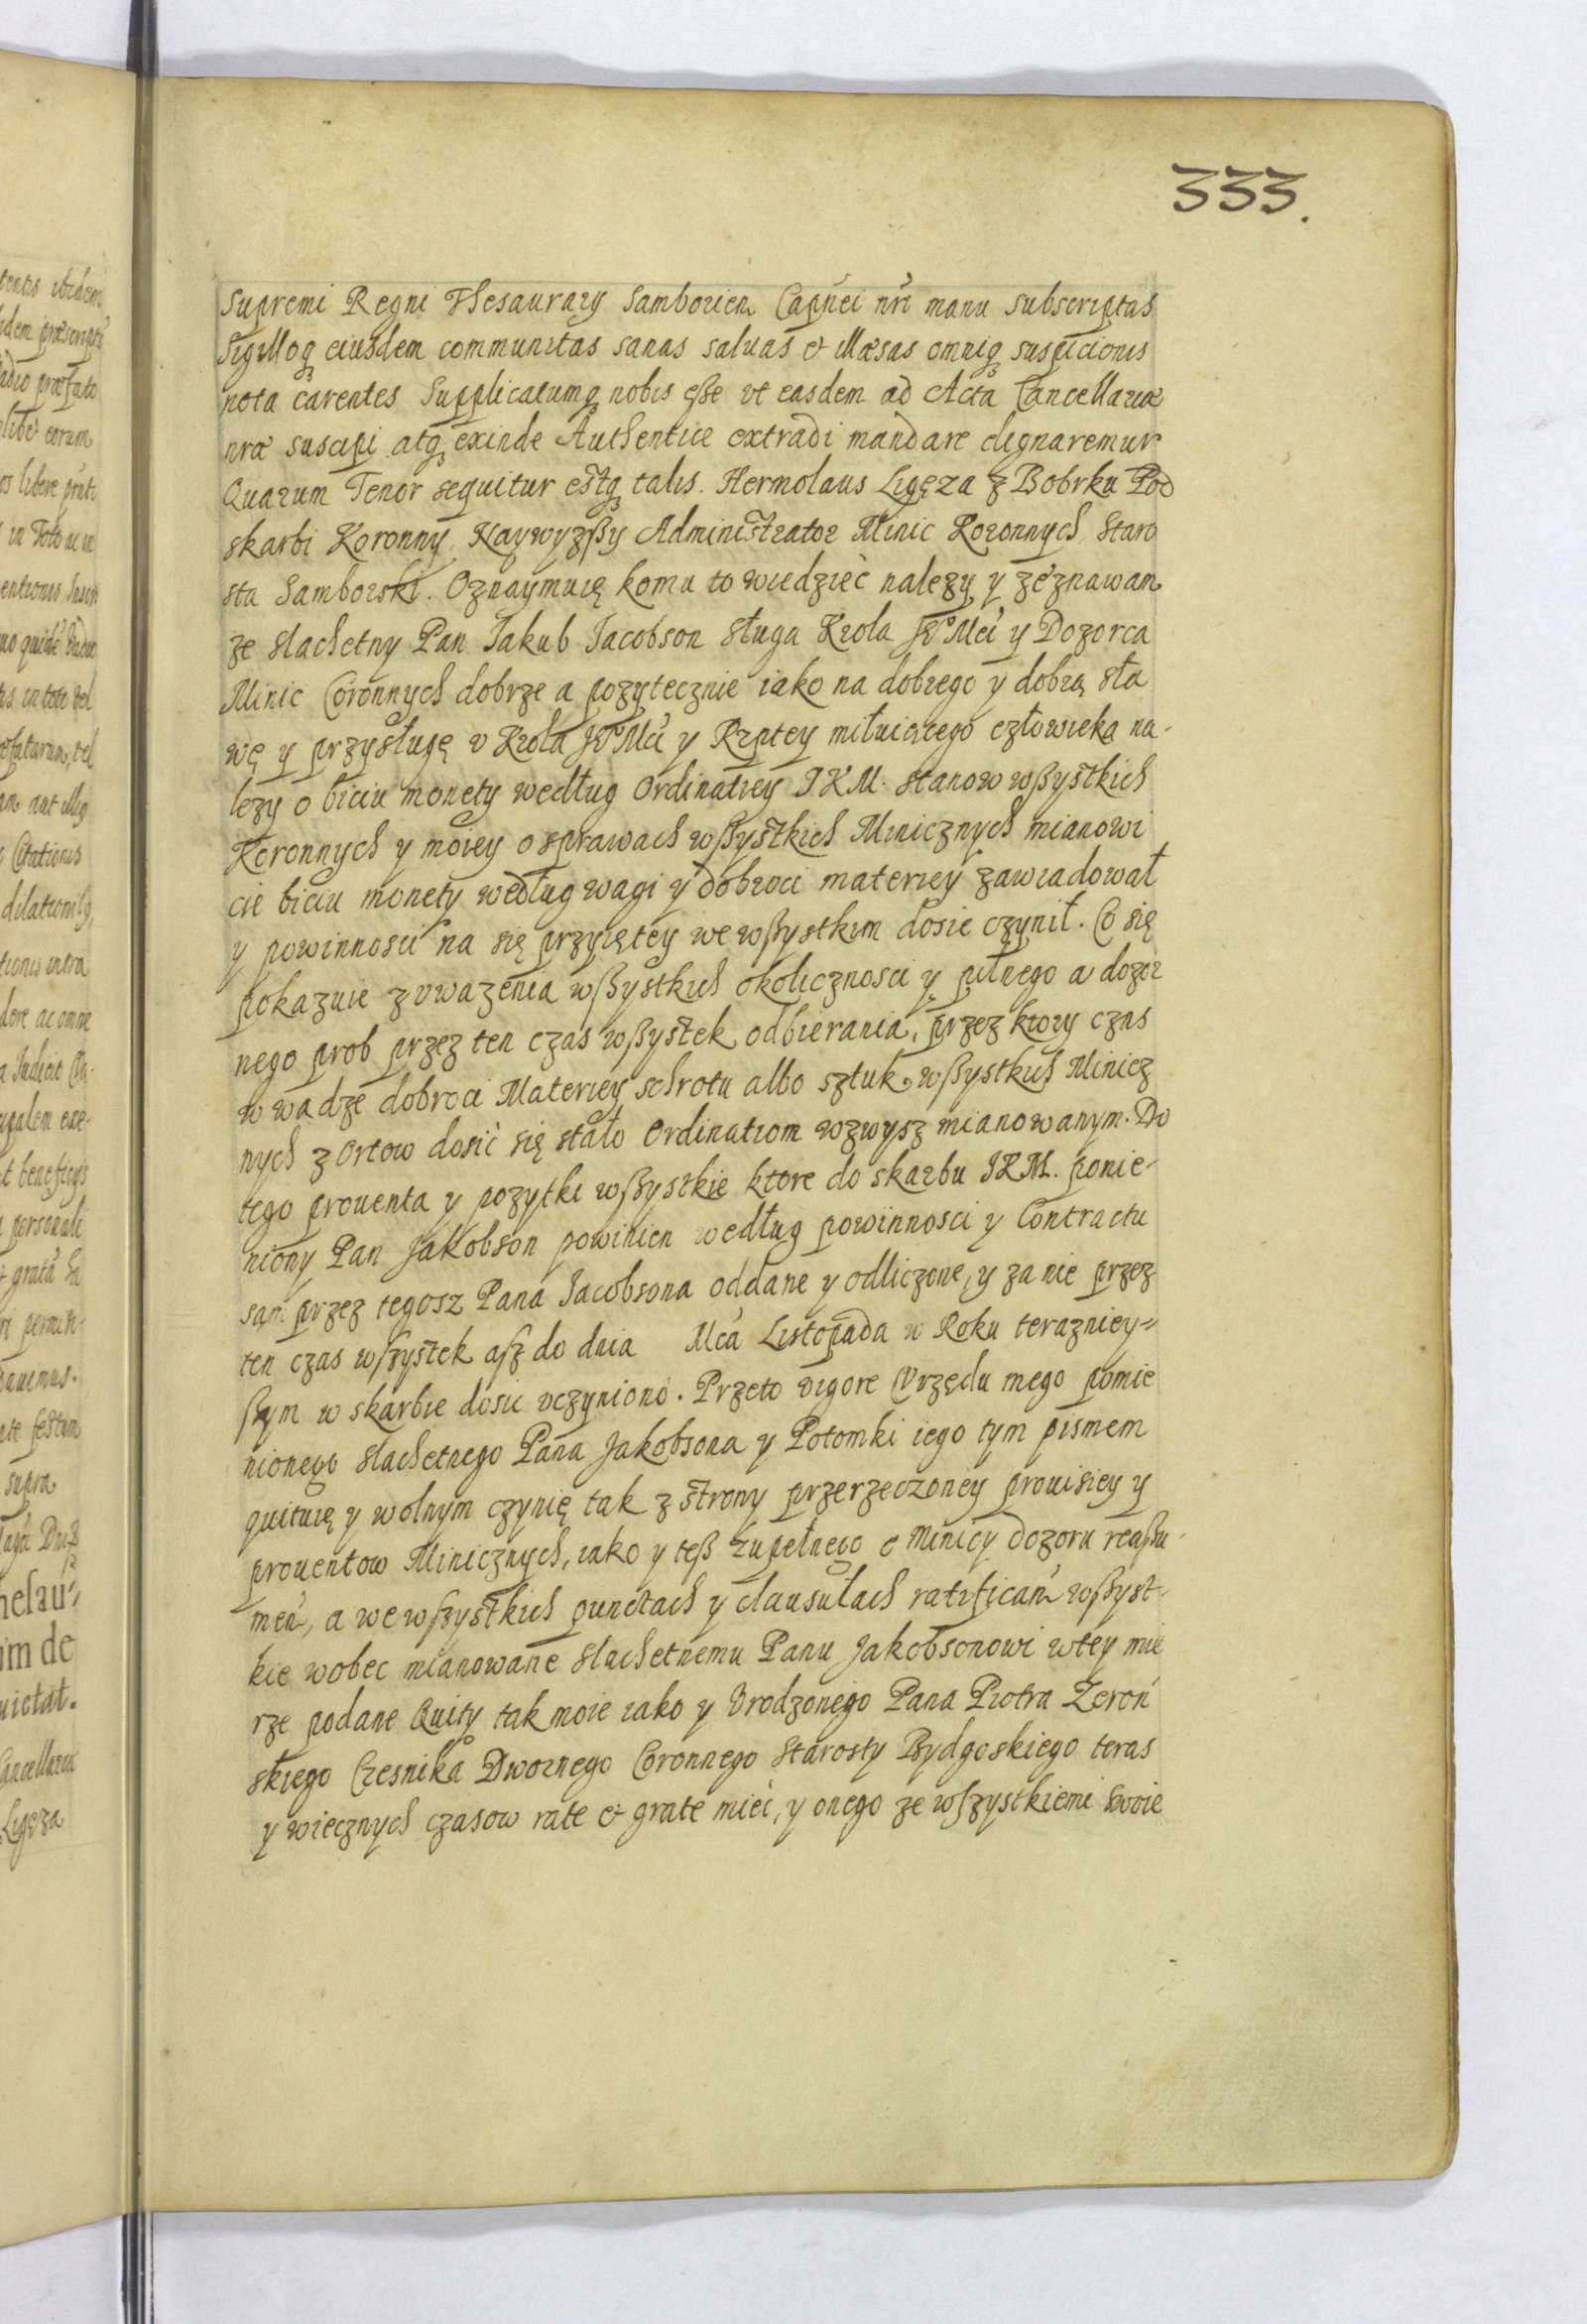 333.
Supremi Regni Thesaurarÿ Samborien Capnei nri manu subscriptas
Sigilloq eiusdem communitas sanas saluas et illæsas omniq suspicionis
nota carentes Supplicatumq nobis eße vt easdem ad Acta Cancellariæ
nræ suscipi atq exinde Authentice extradi mandare dignaremur
Quarum Tenor sequitur estq talis. Hermolaus Ligęza z Bobrku Pod
skarbi Koronny Naywyzßy Administrator Minic Koronnych Staro
sta Samborski. Oznaymuię komu to wiedzieć nalezy y zeznawam
ze slachetny Pan Jakub Jacobson sługa Krola Jº Mci y Dozorca
Minic Coronnych dobrze a pozytecznie iako na dobrego y dobrą sła
wę y przysługę v Krola Jº Mci y Rzptey miłuiącego człowieka na-
lezy o biciu monety według Ordinatiey J K M. stanow wßystkich
Koronnych y moiey o sprawach wßystkich Minicznych mianowi
cie biciu monety według wagi y dobroci materiey zawiadował
y powinnosci na się przyiętey we wßystkim dosic czynił. Co się
pokazuie z vwazenia wßystkich okolicznosci y pilnego a dozor
nego prob przez ten czas wßystek odbierania, przez ktory czas
w wadze dobroci Materiey schrotu albo sztuk wßystkich Minicz
nych z Ortow dosić się stało Ordinatiom wzwysz mianowanym. Do
tego prouenta y pozytki wßystkie ktore do skarbu JKM. ponie-
niony Pan Jakobson powinien według powinnosci y Contractu
sąm przez tegosz Pana Jacobsona oddane y odliczone, y za nie przez
ten czas wszystek asz do dnia Mca Listopada w Roku terazniey=
szym w skarbie dosic vczyniono. Przeto vigore Vrzędu mego pomie
nionego slachetnego Pana Jakobsona y Potomki iego tym pismem
quituię y wolnym czynię tak z strony przerzeczoney prouisiey y
prouentow Minicznych, iako y teß zupełnego o Minicy dozoru reaßu-
men, a we wszystkich punctach y clausulach ratifican wßyst-
kie wobec mianowane slachetnemu Panu Jakobsonowi w tey mie
rze podane Quity tak moie iako y Vrodzonego Pana Piotra Zeroń
skiego Czesnika Dwornego Coronnego Starosty Bydgoskiego teras
y wiecznych czasow rate et grate mieć, y onego ze wszystkiemi swoie